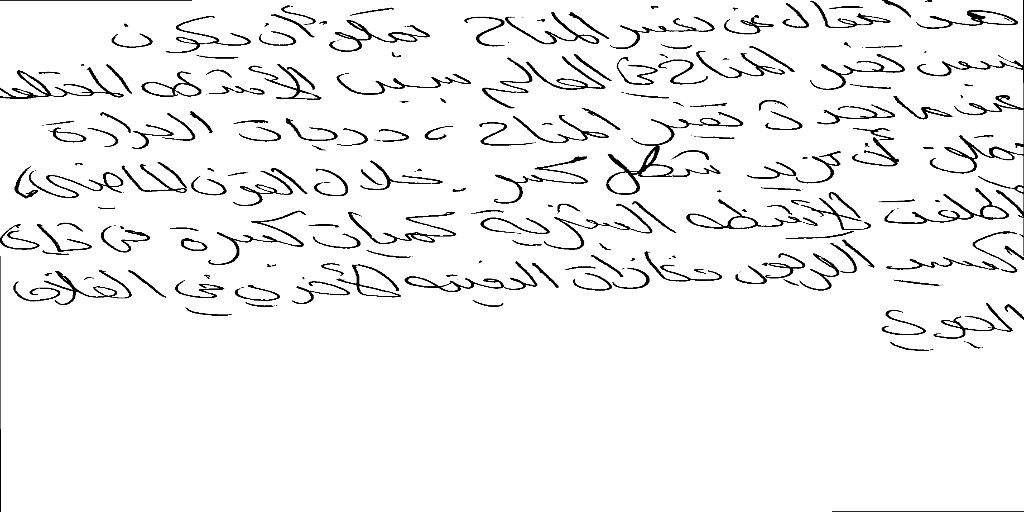 هذا مقال عن تغير المناخ يمكن أن يكون
سبب تغير المناخ في العالم بسبب الأنشطة المختلفة
عندما يحدث تغير المناخ ، درجات الحرارة
يمكن أن تزيد بشكل كبير . خلال القرن الماضي ،
اطلقت الأنشطة البشرية كميات كبيرة من ثاني
اكسيد الكربون غازات الدفيئة الأخرى في الغلاف
الجوي